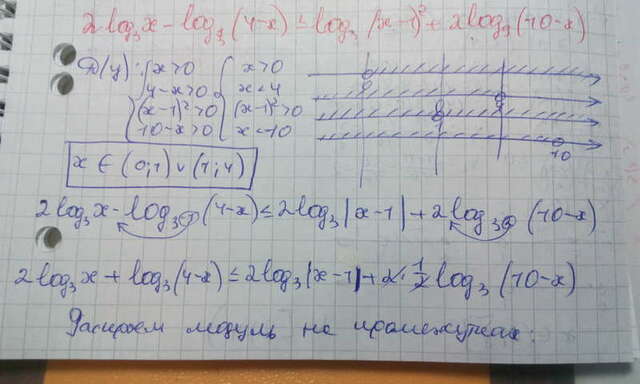 2log₃x - log₁/₃(4-x) ≤ log₃(x-1)² + 2log₉(10-x)
Д(y): { x>0 { x>0
4-x>0 x<4
(x-1)²>0 (x-1)²>0
10-x>0 x<10
10
x ∈ (0;1) ∪ (1;4)
2log₃x - log₃⁻¹(4-x) ≤ 2log₃|x-1| + 2log₃²(10-x)
2log₃x + log₃(4-x) ≤ 2log₃|x-1| + 2·½log₃(10-x)
Раскроем модуль на промежутках: